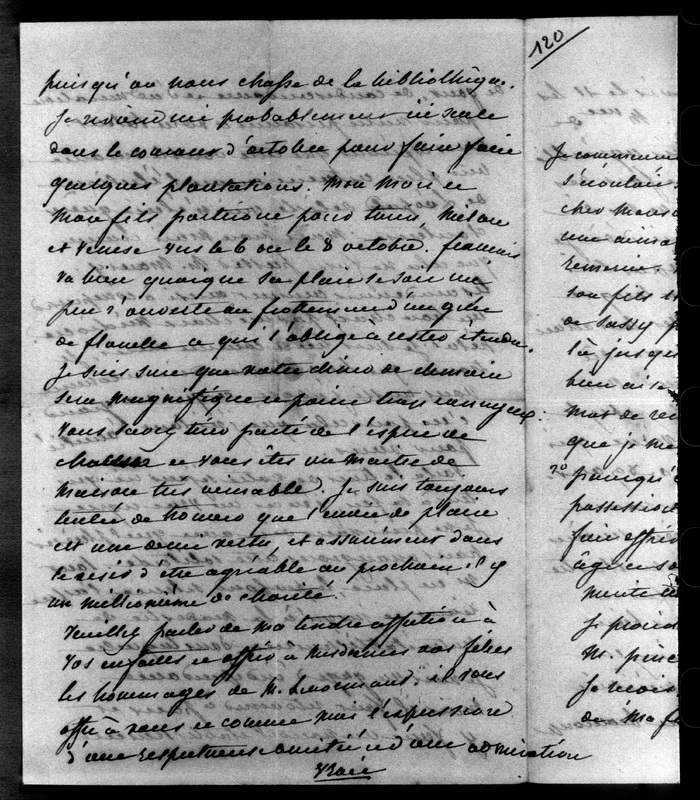 120
puisqu'on nous chasse de la bibliothèque.
Je reviendrai probablement ici seule
dans le courant d'octobre pour faire faire
quelques plantations. Mon Mari et
Mon fils partiront pour Turin, Milan
et Venise vers le 6 ou le 8 octobre. François
va bien quoique sa plaie se soit un
peu r'ouverte au frottement d'un gilet
de flanelle ce qui l'oblige à rester étendu.
Je suis sure que votre diner de demain
sera magnifique et point trop ennuyeux:
vous savez tirer parti de l'esprit de
chacun et vous êtes un maitre de
maison très aimable. Je suis toujours
tentée de trouver que l'envie de plaire
est une demi vertu, et assurément dans
le désir d'être agréable au prochain il y
un millionième de charité.
Veuillez parler de ma tendre affection à
vos enfants et offrir à Mesdames vos filles
les hommages de M. Lenormant. il vous
offre à vous et comme moi l'expression
d'une respectueuse amitié et d'une admiration
vraie
Je commence
s'écoulait
cher Mons
une aima
remercie
son fils
de Sassy
là jusqu
bien aise
mot de
que je me
possession
faire offrir
Je
M.
Je
de Ma